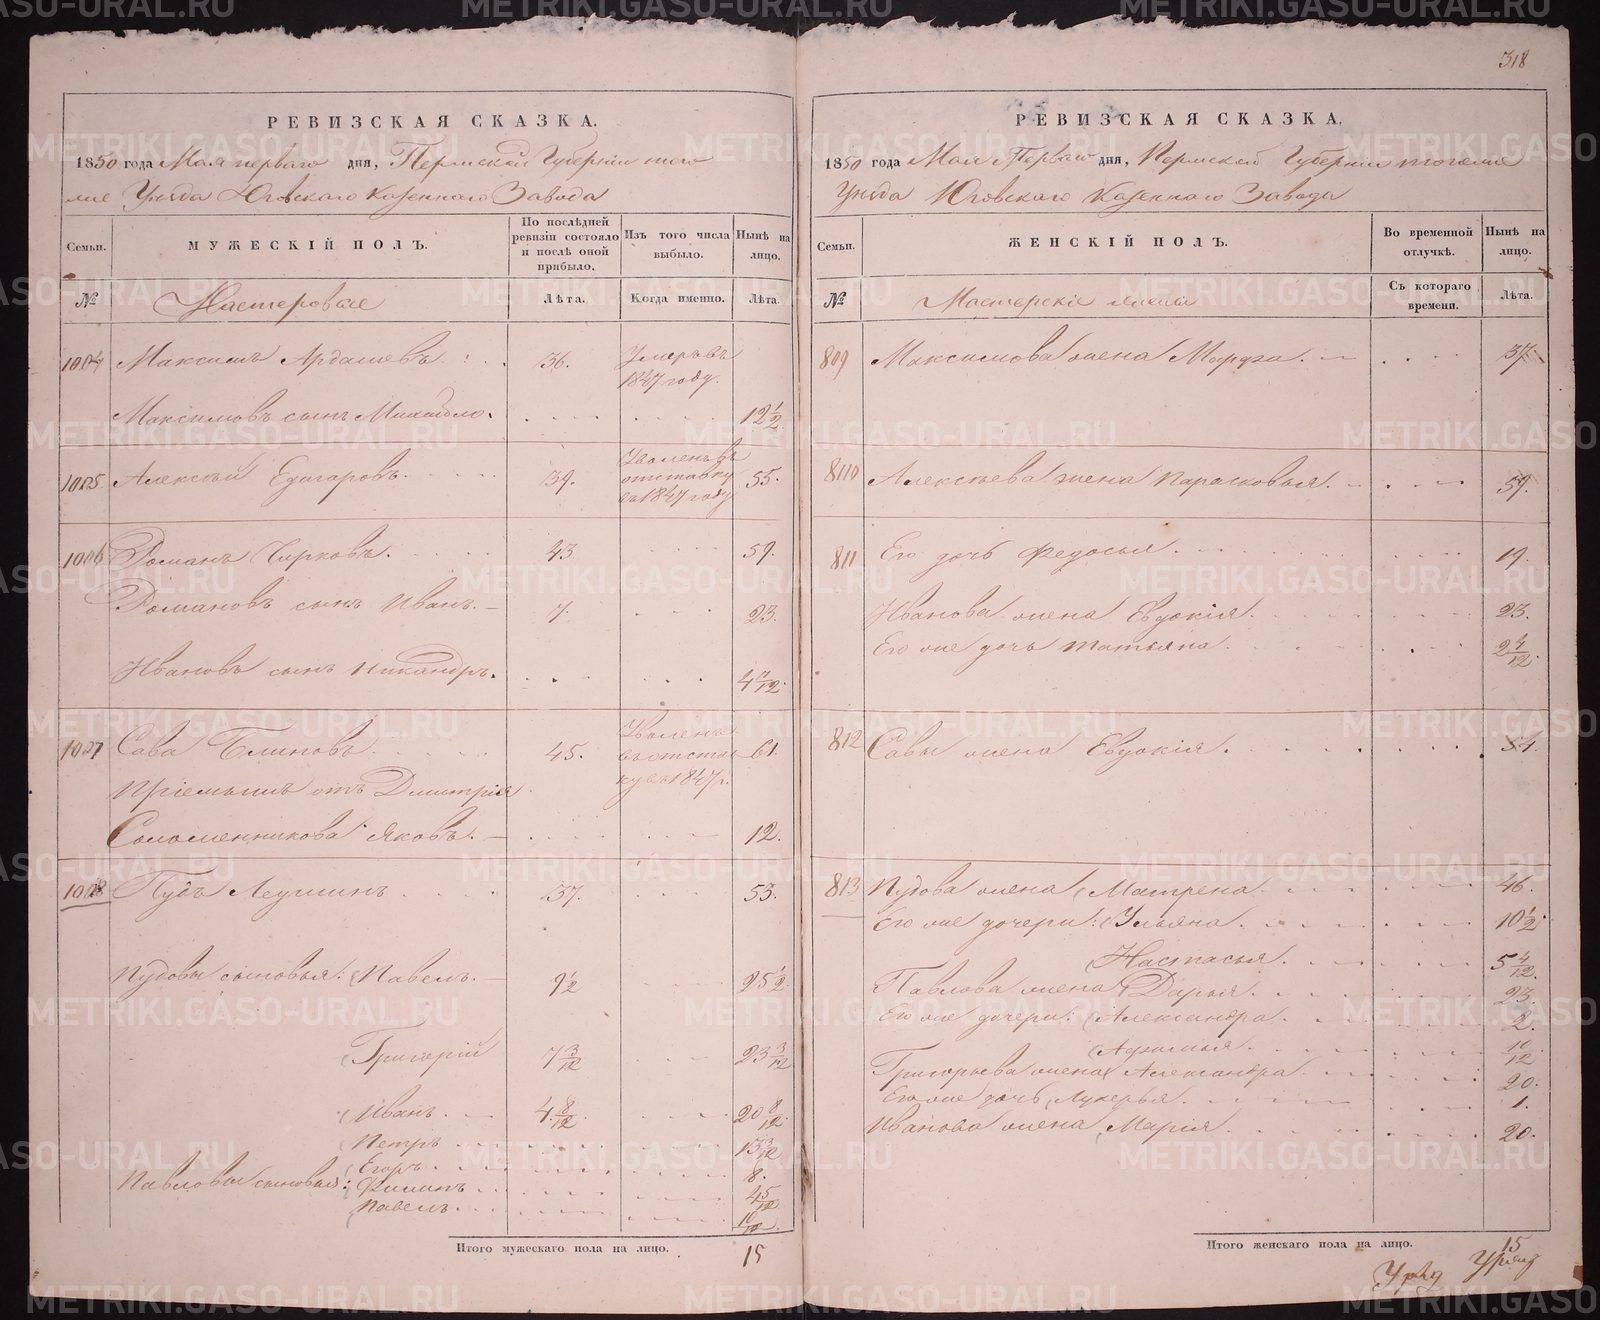 318
РЕВИЗСКАЯ СКАЗКА.
1850 года Мая перваго дня, Пермской Губернiи того
же Уѣзда Юговскаго Казеннаго Завода
Семьи.
МУЖЕСКIЙ ПОЛЪ.
По послѣдней ревизiи состояло и послѣ оной прибыло.
Изъ того числа выбыло.
Нынѣ на лицо.
№
Мастеровые
Лѣта.
Когда именно.
Лѣта.
Максимъ Ардашевъ 36. Умеръ въ 1847 году.
Максимовъ сынъ Михайло. 12 1/2
Алексѣй Едигаровъ. 39. Уволенъ въ отставку въ 1847 году 55.
Романъ Чирковъ. 43 59.
Романовъ сынъ Иванъ. 7. 23.
Ивановъ сынъ Никандръ. 4 7/12.
Сава Блиновъ 45. Уволенъ въ отставку въ 1847 г. 61.
Прiемышъ отъ Дмитрiя
Соломенникова Яковъ. 12.
Пудъ Леушинъ 37. 53.
Пудовы сыновья: Павелъ. 9 1/2 25 1/2
Григорiй 7 3/12 23 3/12
Иванъ. 4 8/12 20 8/12
Петръ 13 3/12
Павловы сыновья: Егоръ 8.
Филипъ 4 5/12
Павелъ 10/12
Итого мужескаго пола на лицо. 15
РЕВИЗСКАЯ СКАЗКА.
1850 года Мая Перваго дня, Пермской Губернiи тогоже
Уѣзда Юговскаго Казеннаго Завода
Семьи.
ЖЕНСКIЙ ПОЛЪ.
Во временной отлучкѣ.
Нынѣ на лицо.
№
Мастерскiе
Съ котораго времени.
Лѣта.
809 Максимова жена Марфа. 37.
810 Алексѣева жена Парасковья. 59.
811 Его дочь Федосья. 19.
Иванова жена Евдокiя. 23.
Его же дочь Татьяна. 2 4/12.
812 Савы жена Евдокiя.
813 Пудова жена Матрена. 46.
Его же дочери: Ульяна. 10 1/2
Настасья. 5 4/12.
Павлова жена Дарья. 23.
Его же дочери: Александра. 2.
Афимья. 10/12
Григорьева жена Александра. 20.
Его же дочь Лукерья. 1.
Иванова жена Марiя. 20.
Итого женскаго пола на лицо. 15
METRIKI.GASO-URAL.RU